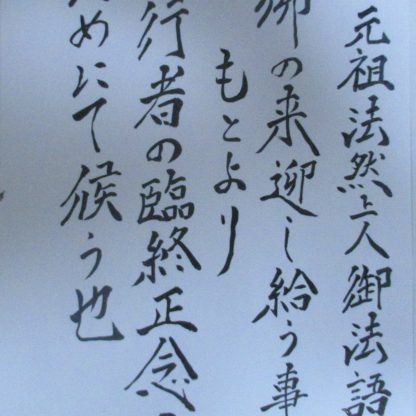 元祖法然上人御法語
の来迎し給う事
もとより
行者の臨終正念
めにて候う也